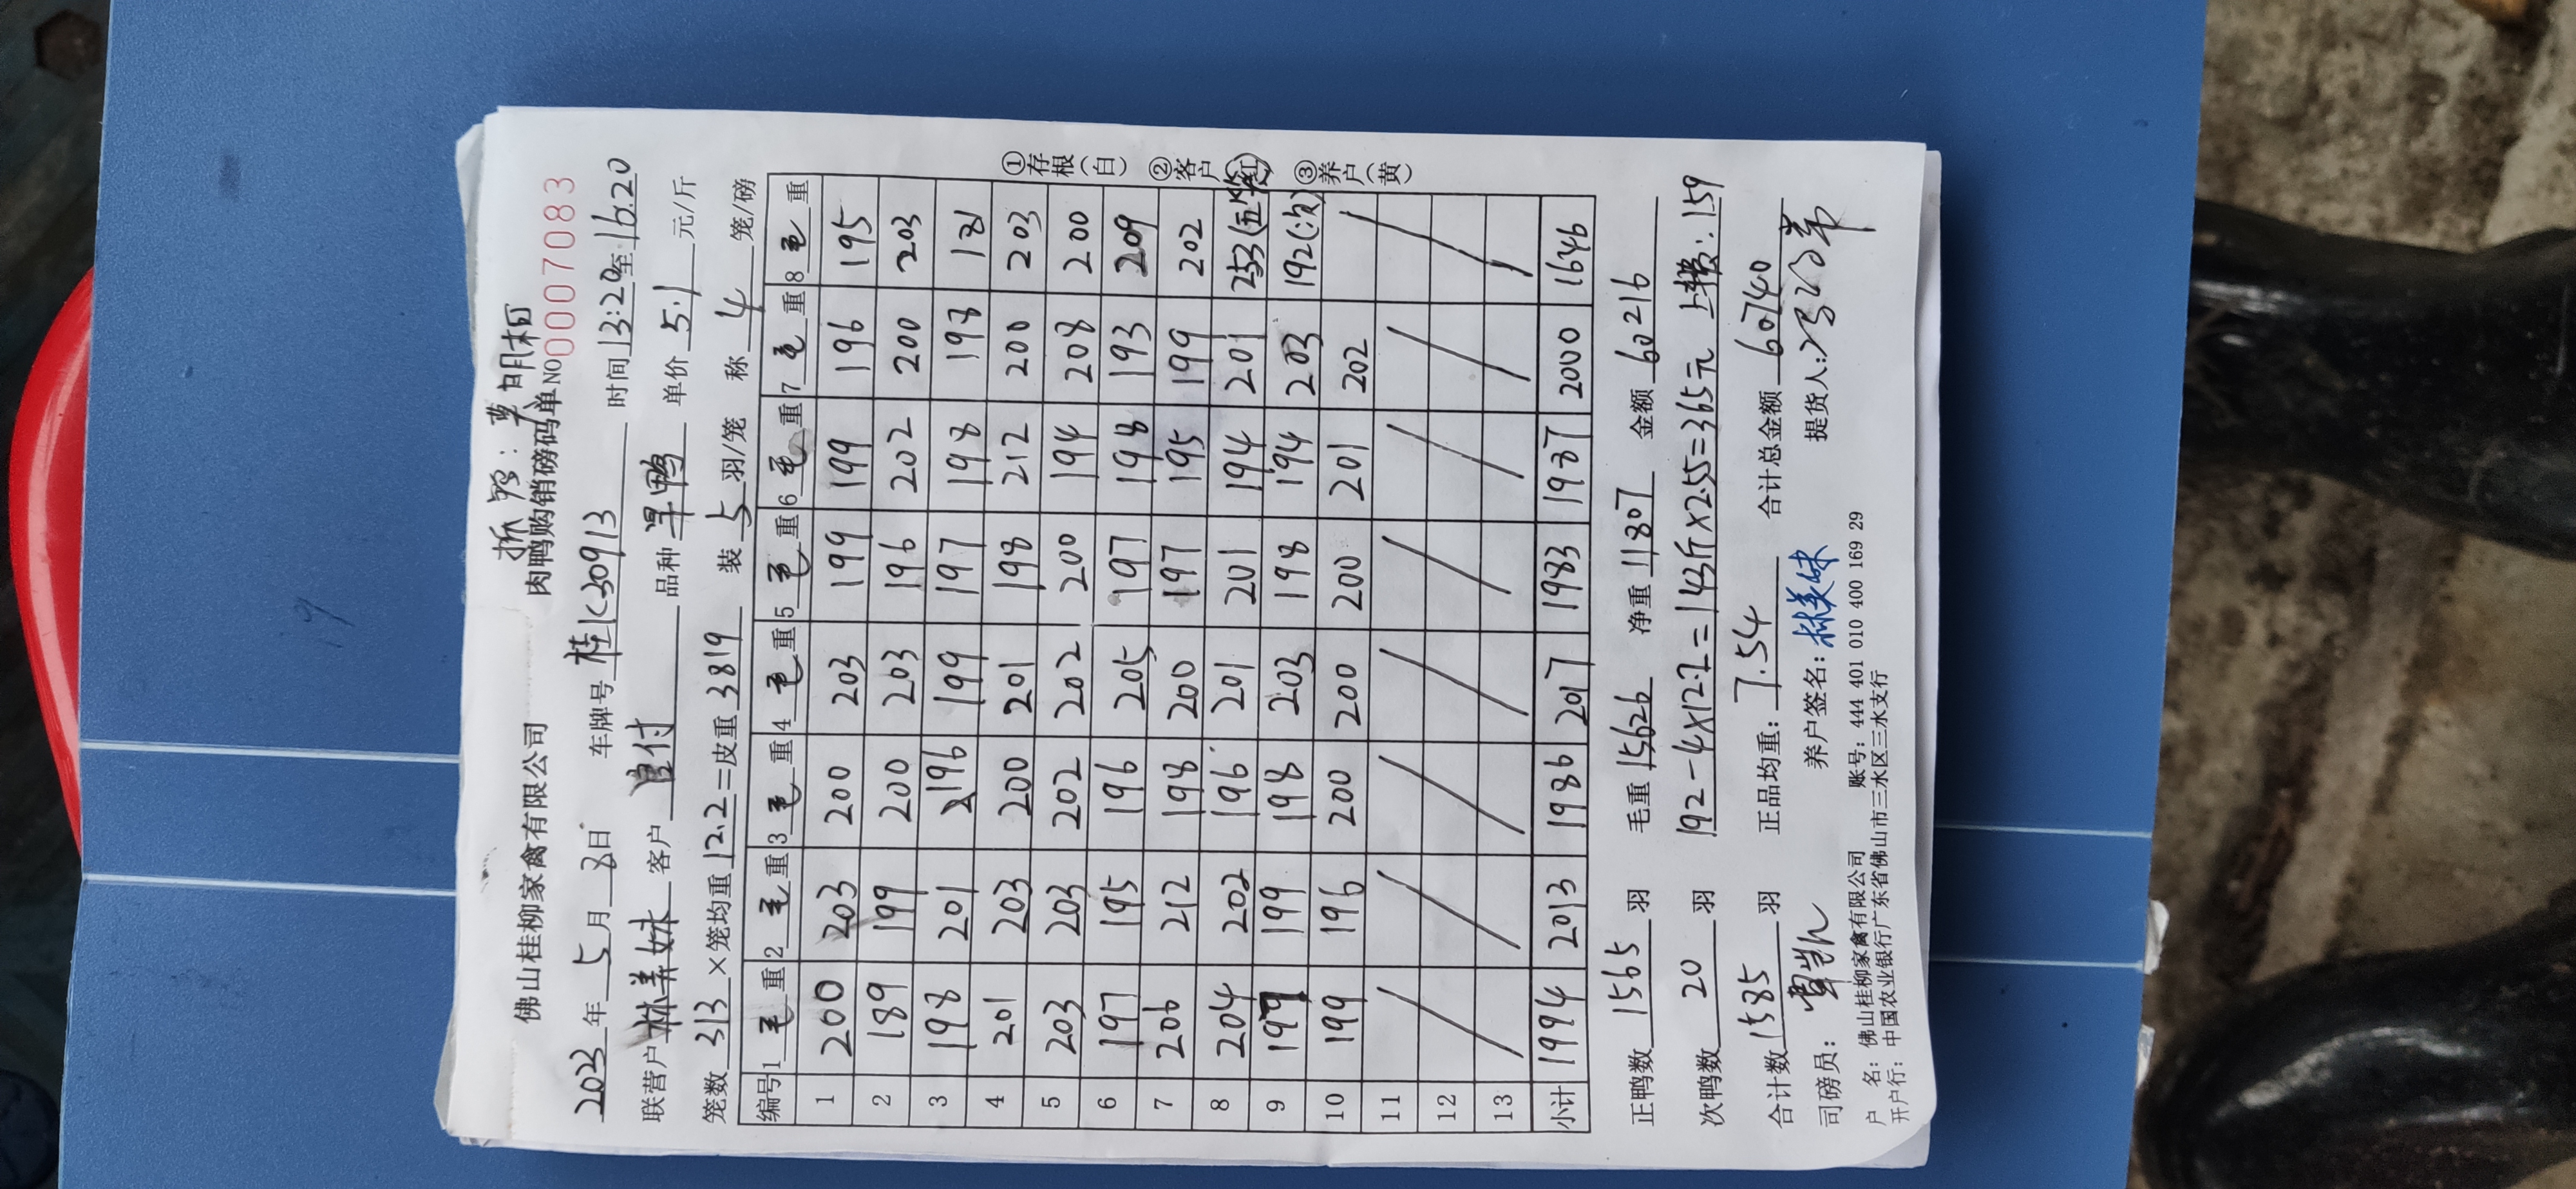 抓鸭：黄明相
佛山桂柳家禽有限公司 肉鸭购销磅码单 NO 00007083
2023年5月8日 车牌号 桂K30913 时间 13:20至16:20
联营户 林美妹 客户 自付 品种 旱鸭 单价 5.1 元/斤
笼数 313 ×笼均重 12.2 =皮重 3819 装 5 羽/笼 称 4 笼/磅
编号 1 毛重 2 毛重 3 毛重 4 毛重 5 毛重 6 毛重 7 毛重 8 毛重
1 200 203 200 203 199 199 196 195
2 189 199 200 203 196 202 200 203
3 198 201 196 199 197 198 198 181
4 201 203 200 201 198 212 200 203
5 203 203 202 202 200 194 208 200
6 197 195 196 205 197 198 193 209
7 206 212 198 200 197 195 199 202
8 204 202 196 201 201 194 201 253(五笼)
9 199 199 198 203 198 194 203 192(次)
10 199 196 200 200 200 201 202
11
12
13
小计 1994 2013 1986 2017 1983 1987 2000 1646
①存根(白) ②客户(红) ③养户(黄)
正鸭数 1565 羽 毛重 15626 净重 11807 金额 60216
次鸭数 20 羽 192-4×12.2=143斤×2.55=365元 上车费:159
合计数 1585 羽 正品均重: 7.54 合计总金额 60740
司磅员: 养户签名: 林美妹 提货人:
户 名: 佛山桂柳家禽有限公司 账号: 444 401 010 400 169 29
开户行: 中国农业银行广东省佛山市三水区三水支行